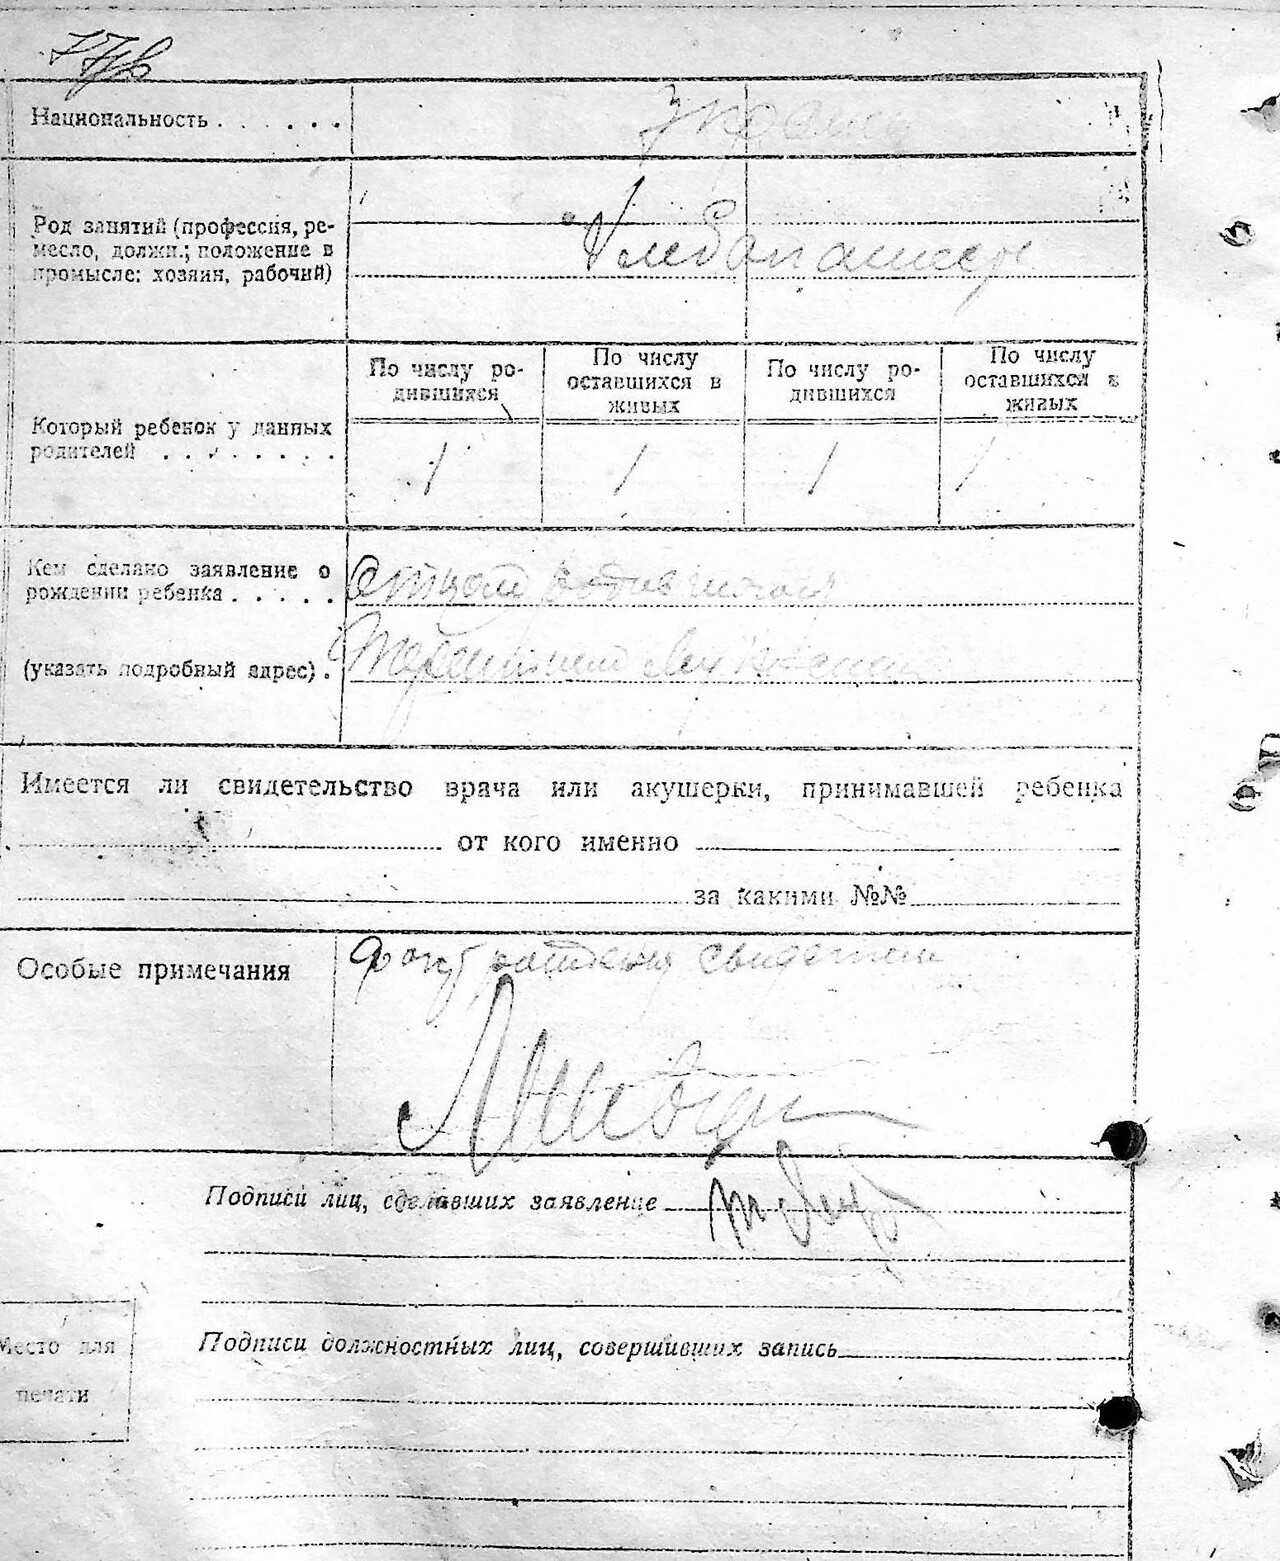 Национальность . . . . . .
Род занятий (профессия, ре-
месло, должн.; положение в
промысле: хозяин, рабочий)
Хлебопашец
По числу ро-
дившихся
По числу
оставшихся в
живых
По числу ро-
дившихся
По числу
оставшихся в
живых
Который ребенок у данных
родителей . . . . . . . .
1 1 1 1
Кем сделано заявление о
рождении ребенка . . . . .
Отцом
(указать подробный адрес) .
Имеется ли свидетельство врача или акушерки, принимавшей ребенка
от кого именно
за какими №№
Особые примечания
Факт рождения
Подписи лиц, сделавших заявление
Подписи должностных лиц, совершивших запись
Место для
печати